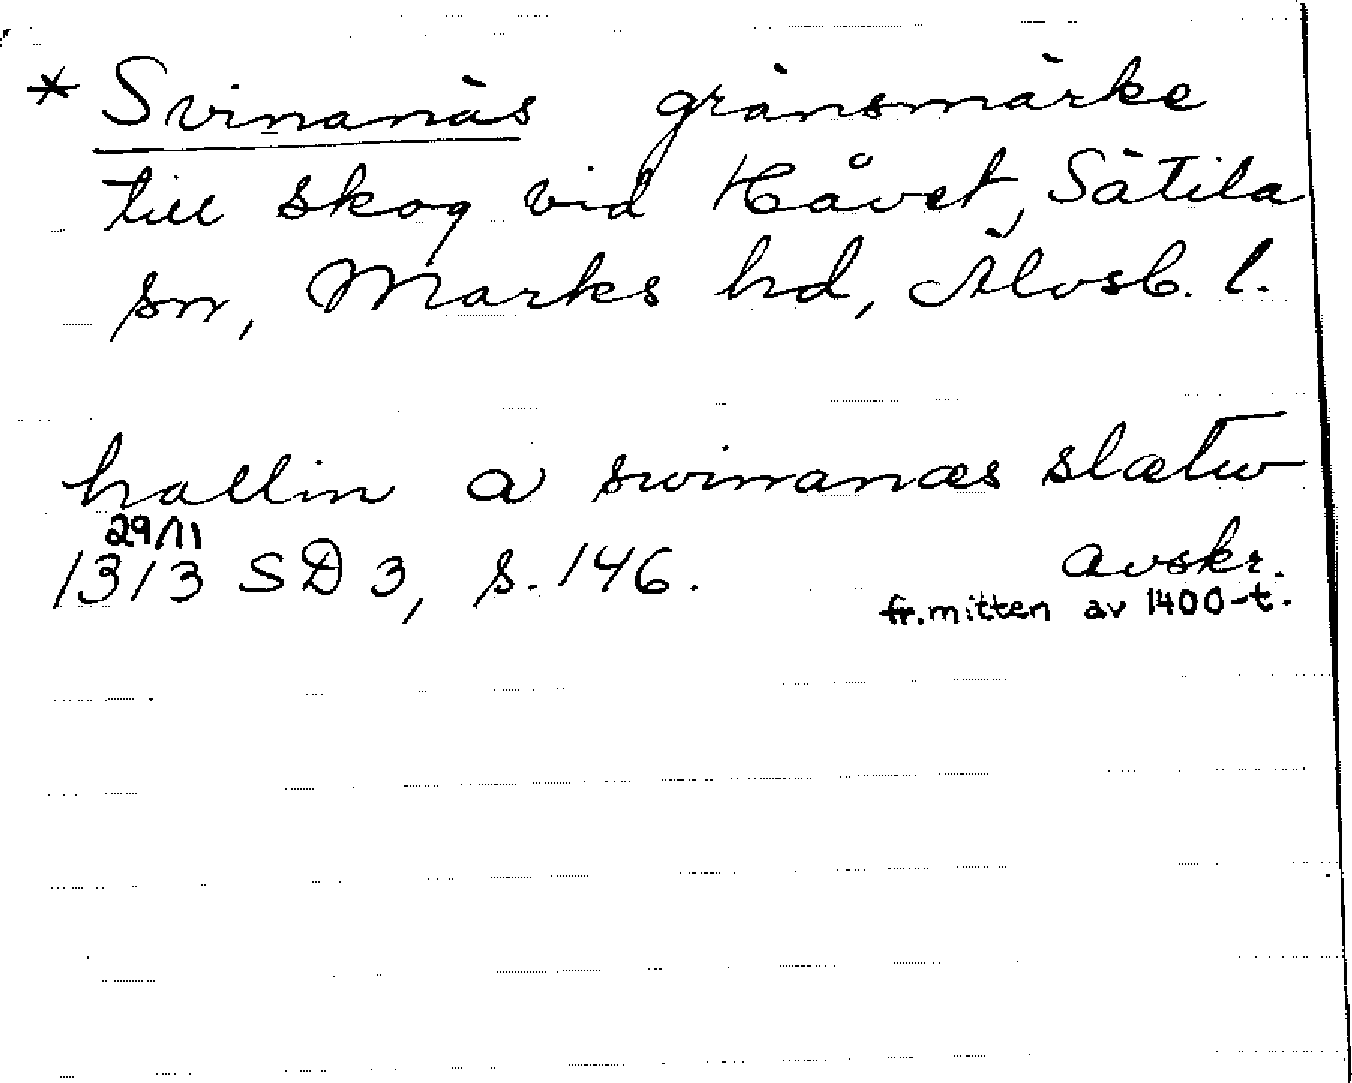 * Svinanäs gränsmärke
till skog vid Håvet, Sätila
sn, Marks hd, Älvsb. l.
hallin a swinanæs slætw
29/11
1313 SD 3, s. 146. avskr.
fr. mitten av 1400-t.